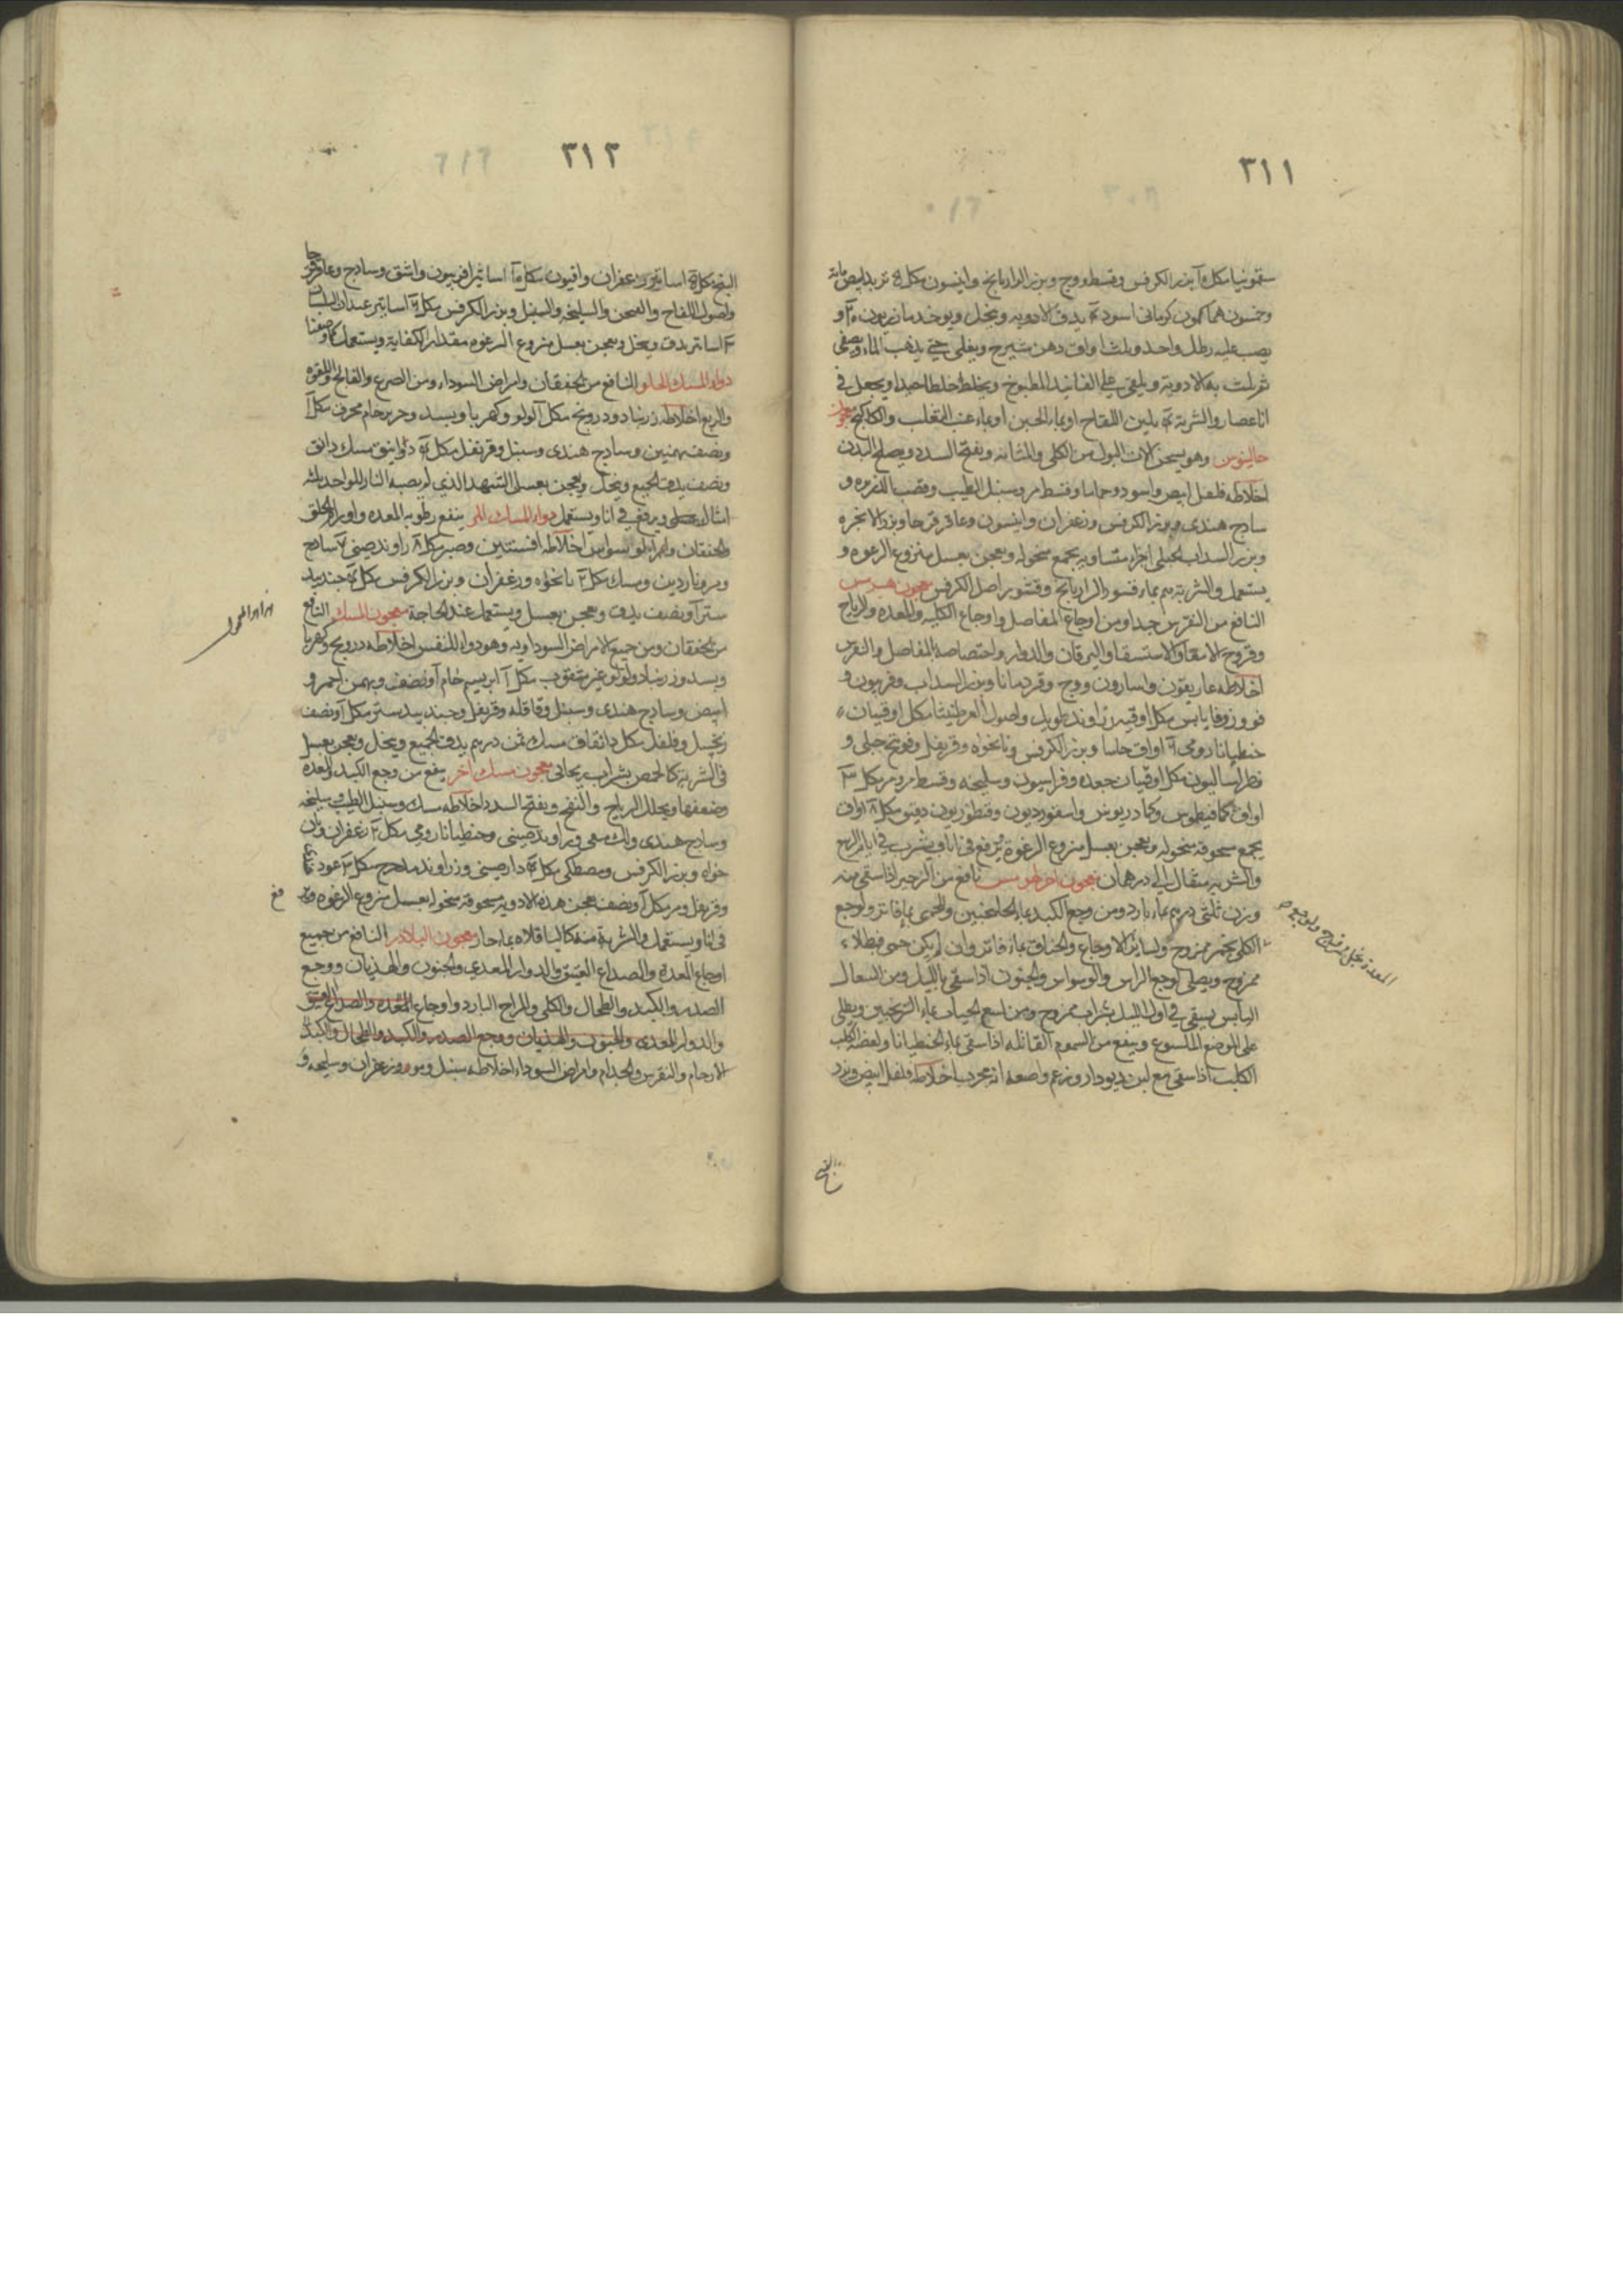 ٣١١
سقمونيا مكد وبزر الكرفس وقسط ووج وبزر الرازيانج وانيسون مكد تربد ابيض مائة
وخمسون هما كمون كرماني اسود يدق الادويه وينخل ويوخذ مازريون و
يصب عليه رطل واحد وثلث اواق دهن شيرج ويغلى حتى يذهب الماء ويصفى
ثم يلت به الادوية ويلقى على الفانيد المطبوخ ويخلط خلطا جيدا ويجعل في
انا غضار والشربة بلبن اللقاح او بماء الجبن او بماء عنب الثعلب والكاكنج معجون
جالينوس وهو يسخن الات البول من الكلى والمثانه ويفتح السدد ويصلح البدن
اخلاطه فلفل ابيض واسود وحماما وقسط مر وسنبل الطيب وقصب الذريره و
سادج هندى وبزر الكرفس وزعفران وانيسون وعاقرقرحا وبزر الانجره
وبزر السداب الجبلى اجزا متساويه يجمع منخوله ويعجن بعسل منزوع الرغوه و
يستعمل والشربة بماء قشور الرازيانج وقشور اصل الكرفس معجون هرمس
النافع من النقرس جدا ومن اوجاع المفاصل واوجاع الكليه والمعده والرياح
وقروح الامعا والاستسقا واليرقان والدوار واختصاصه بالمفاصل والنقرس
اخلاطه غاريقون واسارون ووج وقردمانا وبزر السداب وفربيون و
فو وزوفا يابس مكد اوقيه زراوند طويل واصول العرطنيثا مكد اوقيتان
جنطيانا رومى اواق حاشا وبزر الكرفس ونانخواه وقرنفل وفوتنج جبلى و
فطراساليون مكد اوقيتان جعده وفراسيون وسليخه وقسط مر ومر مكد
اواق كمافيطوس وكمادريوس واسقورديون وقنطوريون دقيق مكد اواق
يجمع مسحوقه منخوله ويعجن بعسل منزوع الرغوة ويرفع في انا ويشرب في ايام الربيع
والشربه مثقال الى درهمان معجون اخر لهرمس نافع من الزحير اذا سقى منه
وزن ثلثى درهم بماء بارد ومن وجع الكبد بماء الجلنجبين والحمى بماء فاتر ولوجع
الكلى بخمر ممزوج ولسائر الاوجاع والخناق بماء فاتر وان لم يكن حمى فبطلاء
ممزوج ويصلى لوجع الراس والوسواس والجنون اذا سقى بالليل ومن السعال
اليابس يسقى في اول الليل بشراب ممزوج ومن لسع الحيات بماء الترنجبين ويطلى
على الموضع الملسوع وينفع من السموم القاتله اذا سقى بماء الجنطيانا ولعضة الكلب
الكلب اذا سقى مع لبن ديودار وزعم واضعه انه مجرب اخلاطه فلفل ابيض وبزر
البنج
المعدة بخل ممزوج ولوجع
٣١٢
البنج مكد اساتير زعفران وافيون مكد اساتير افربيون واشق وسادج وعاقرقرحا
واصول اللفاح والسليخه والسنبل وبزر الكرفس مكد اساتير عيدان البلسان
اساتير يدق وينخل ويعجن بعسل منزوع الرغوه مقدار الكفاية ويستعمل كما وصفنا
دواء المسك الحلو النافع من الخفقان وامراض السوداء ومن الصرع والفالج واللقوه
والربع اخلاطه زرنباد ودرونج مكد لولو وكهربا وبسد وحرير خام محرق مكد
ونصف بهمنين وسادج هندى وسنبل وقرنفل مكد دوانيق مسك دانق
ونصف يدق الجميع وينخل ويعجن بعسل الشهد الذي لم يصبه النار للواحد ثلثه
امثاله ويرفع في انا ويستعمل دواء المسك المر ينفع رطوبه المعده واورام الحلق
والخفقان والوسواس اخلاطه افسنتين وصبر مكد راوند صينى سادج
ومر وناردين ومسك مكد نانخواه وزعفران وبزر الكرفس مكد جندبيد
ستر ونصف يدق ويعجن بعسل ويستعمل عند الحاجة معجون المسك النافع
من الخفقان ومن جميع الامراض السوداويه وهو دواء للنفس اخلاطه درونج وكهربا
وبسد وزرنباد ولولو غير مثقوب مكد ابريسم خام ونصف وبهمن احمر و
ابيض وسادج هندى وسنبل وقاقله وقرنفل وجندبيدستر مكد ونصف
زنجبيل وفلفل مكد دانقان مسك ثمن درهم يدق الجميع وينخل ويعجن بعسل
في الشربة كالحمص بشراب ريحاني معجون مسك اخر ينفع من وجع الكبد والمعده
وضعفها ويحلل الرياح والنفخ ويفتح السدد اخلاطه مسك وسنبل الطيب وسليخه
وسادج هندى ولك منقى وراوند صينى وجنطيانا رومى مكد زعفران ونان
خواه وبزر الكرفس ومصطكى مكد دارصينى وزراوند مدحرج مكد عود
وقرنفل ومر مكد ونصف يعجن هذه الادويه مسحوقة منخوله بعسل منزوع الرغوه
فى انا ويستعمل والشربة منه كالباقلاه بماء حار معجون البلادر النافع من جميع
اوجاع المعدة والصداع العتيق والدوار المعدى والجنون والهذيان ووجع
الصدر والكبد والطحال والكلى والمزاج البارد واوجاع المعده والصداع العتيق
والدوار المعدى والجنون والهذيان ووجع الصدر والكبد والطحال والكبد
الارحام والنقرس والجذام وامراض السوداء اخلاطه سنبل ومر وزعفران وسليخه و